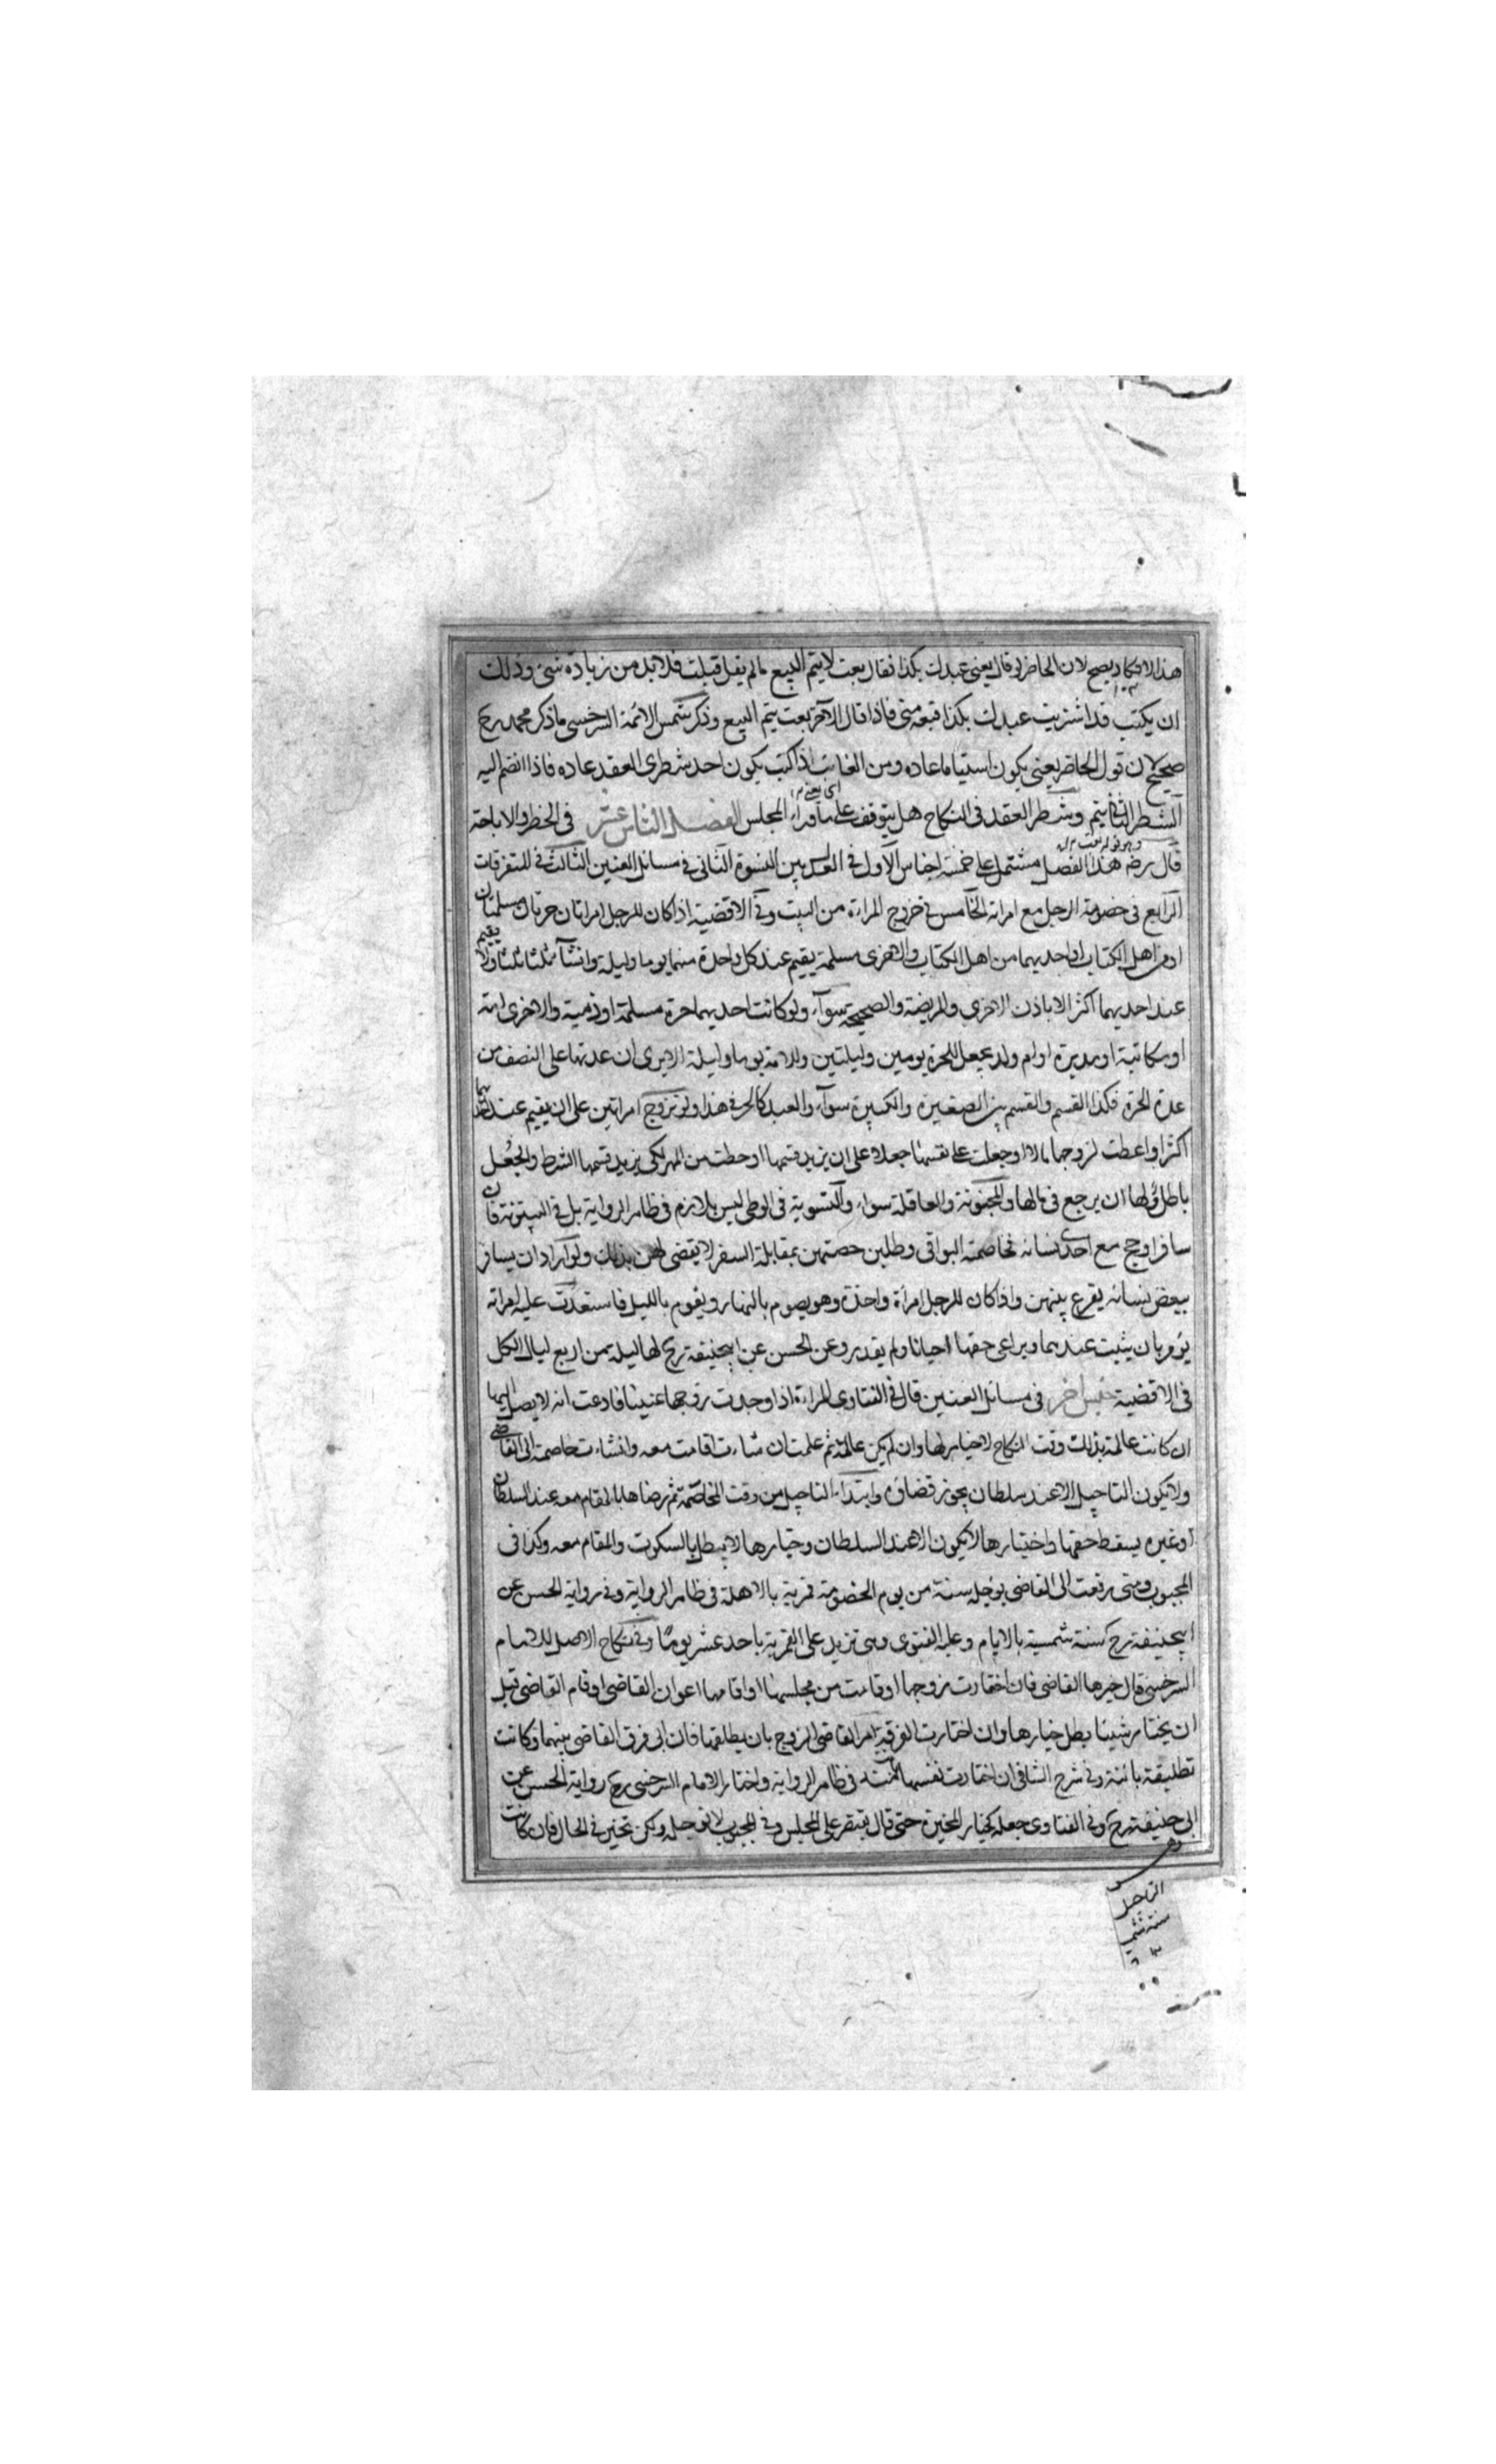 هذا لا يكاد يصح لان الحاضر لو قال بعنى عبدك بكذا فقال بعت لا يتم البيع ما لم يقل قبلت فلا بد من زيادة شئ وذلك
ان يكتب قد اشتريت عبدك بكذا فبعه منى فاذا قال الآخر بعت يتم البيع وذكر شمس الائمة السرخسى ما ذكر محمد رح
صحيح لان قول الحاضر بعنى يكون استياما عادة ومن الغائب اذا كتب يكون احد شطرى العقد عاده فاذا انضم اليه
الشطر الثانى يتم وشطر العقد فى النكاح هل يتوقف على ما وراء المجلس الفصل الثامن عشر فى الحظر والاباحة
قال رضه هذا الفصل مشتمل على خمسة اجناس الاول فى العدل بين النسوة الثانى فى مسائل العنين الثالث فى المتفرقات
الرابع فى خصومة الرجل مع امراته الخامس فى خروج المراءة من البيت وفى الاقضية اذا كان للرجل امراتان حرتان مسلمتان
او من اهل الكتاب او احديهما من اهل الكتاب والاخرى مسلمة يقيم عند كل واحدة منهما يوما وليلة وان شآء ثلثا ثلثا ولا يقيم
عند احديهما اكثر الا باذن الاخرى والمريضة والصحيحة سوآء ولو كانت احديهما حرة مسلمة او ذمية والاخرى امة
او مكاتبة او مدبرة او ام ولد يجعل للحرة يومين وليلتين وللامة يوما وليلة الا يرى ان عدتها على النصف من
عدة الحرة فكذا القسم والقسم بين الصغيرة والكبيرة سوآء والعبد كالحر فى هذا ولو تزوج امراتين على ان يقيم عند احديهما
اكثر او اعطت لزوجها مالا او جعلت على نفسها جعلا على ان يزيد قسمها او حطت من المهر لكى يزيد قسمها الشرط والجعل
باطل ولها ان يرجع فى مالها والمجنونة والعاقلة سواء والتسوية فى الوطى ليس بلازم فى ظاهر الرواية بل فى البيتوتة فان
سافر او حج مع احدى نسائه فخاصمته البواقى وطلبن حصتهن بمقابلة السفر لا يقضى لهن بذلك ولو اراد ان يسافر
ببعض نسائه يقرع بينهن واذا كان للرجل امرأة واحدة وهو يصوم بالنهار ويقوم بالليل فاستعدت عليه امراته
يؤمر بان يثبت عندها ويراعى حقها احيانا ولم يقدر وعن الحسن عن ابيحنيفة رح لها ليلة من اربع ليال الكل
فى الاقضية جنس آخر فى مسائل العنين قال فى الفتاوى المراءة اذا وجدت زوجها عنينا فادعت انه لا يصل اليها
ان كانت عالمة بذلك وقت النكاح لا خيار لها وان لم يكن عالمة ثم علمت ان شاءت اقامت معه وان شاءت خاصمته الى القاضى
ولا يكون التاجيل الا عند سلطان يجوز قضاؤه وابتداء التاجيل من وقت المخاصمة ثم رضاها بالمقام معه عند السلطان
او غيره يسقط حقها واختيارها لا يكون الا عند السلطان وخيارها لا يبطل بالسكوت والمقام معه وكذا فى
المجبوب ومتى رفعت الى القاضى يؤجله سنة من يوم الخصومة قمرية بالاهلة فى ظاهر الرواية وفى رواية الحسن عن
ابيحنيفة رح سنة شمسية بالايام وعليه الفتوى وهى تزيد على القمرية باحد عشر يوما وفى نكاح الاصل للامام
السرخسى قال خيرها القاضى فان اختارت زوجها او قامت من مجلسها او اقامها اعوان القاضى او قام القاضى قبل
ان يختار شيئا بطل خيارها وان اختارت الفرقة امر القاضى الزوج بان يطلقها فان ابى فرق القاضى بينهما وكانت
تطليقة بائنة وفى شرح الشافى ان اختارت نفسها بانت فى ظاهر الرواية واختار الامام السرخسى رح رواية الحسن عن
ابى حنيفة رح وفى الفتاوى جعله كخيار المخيرة حتى قال يقتصر على المجلس وفى المجبوب لا تؤجله ولكن تخير فى الحال فان كانت